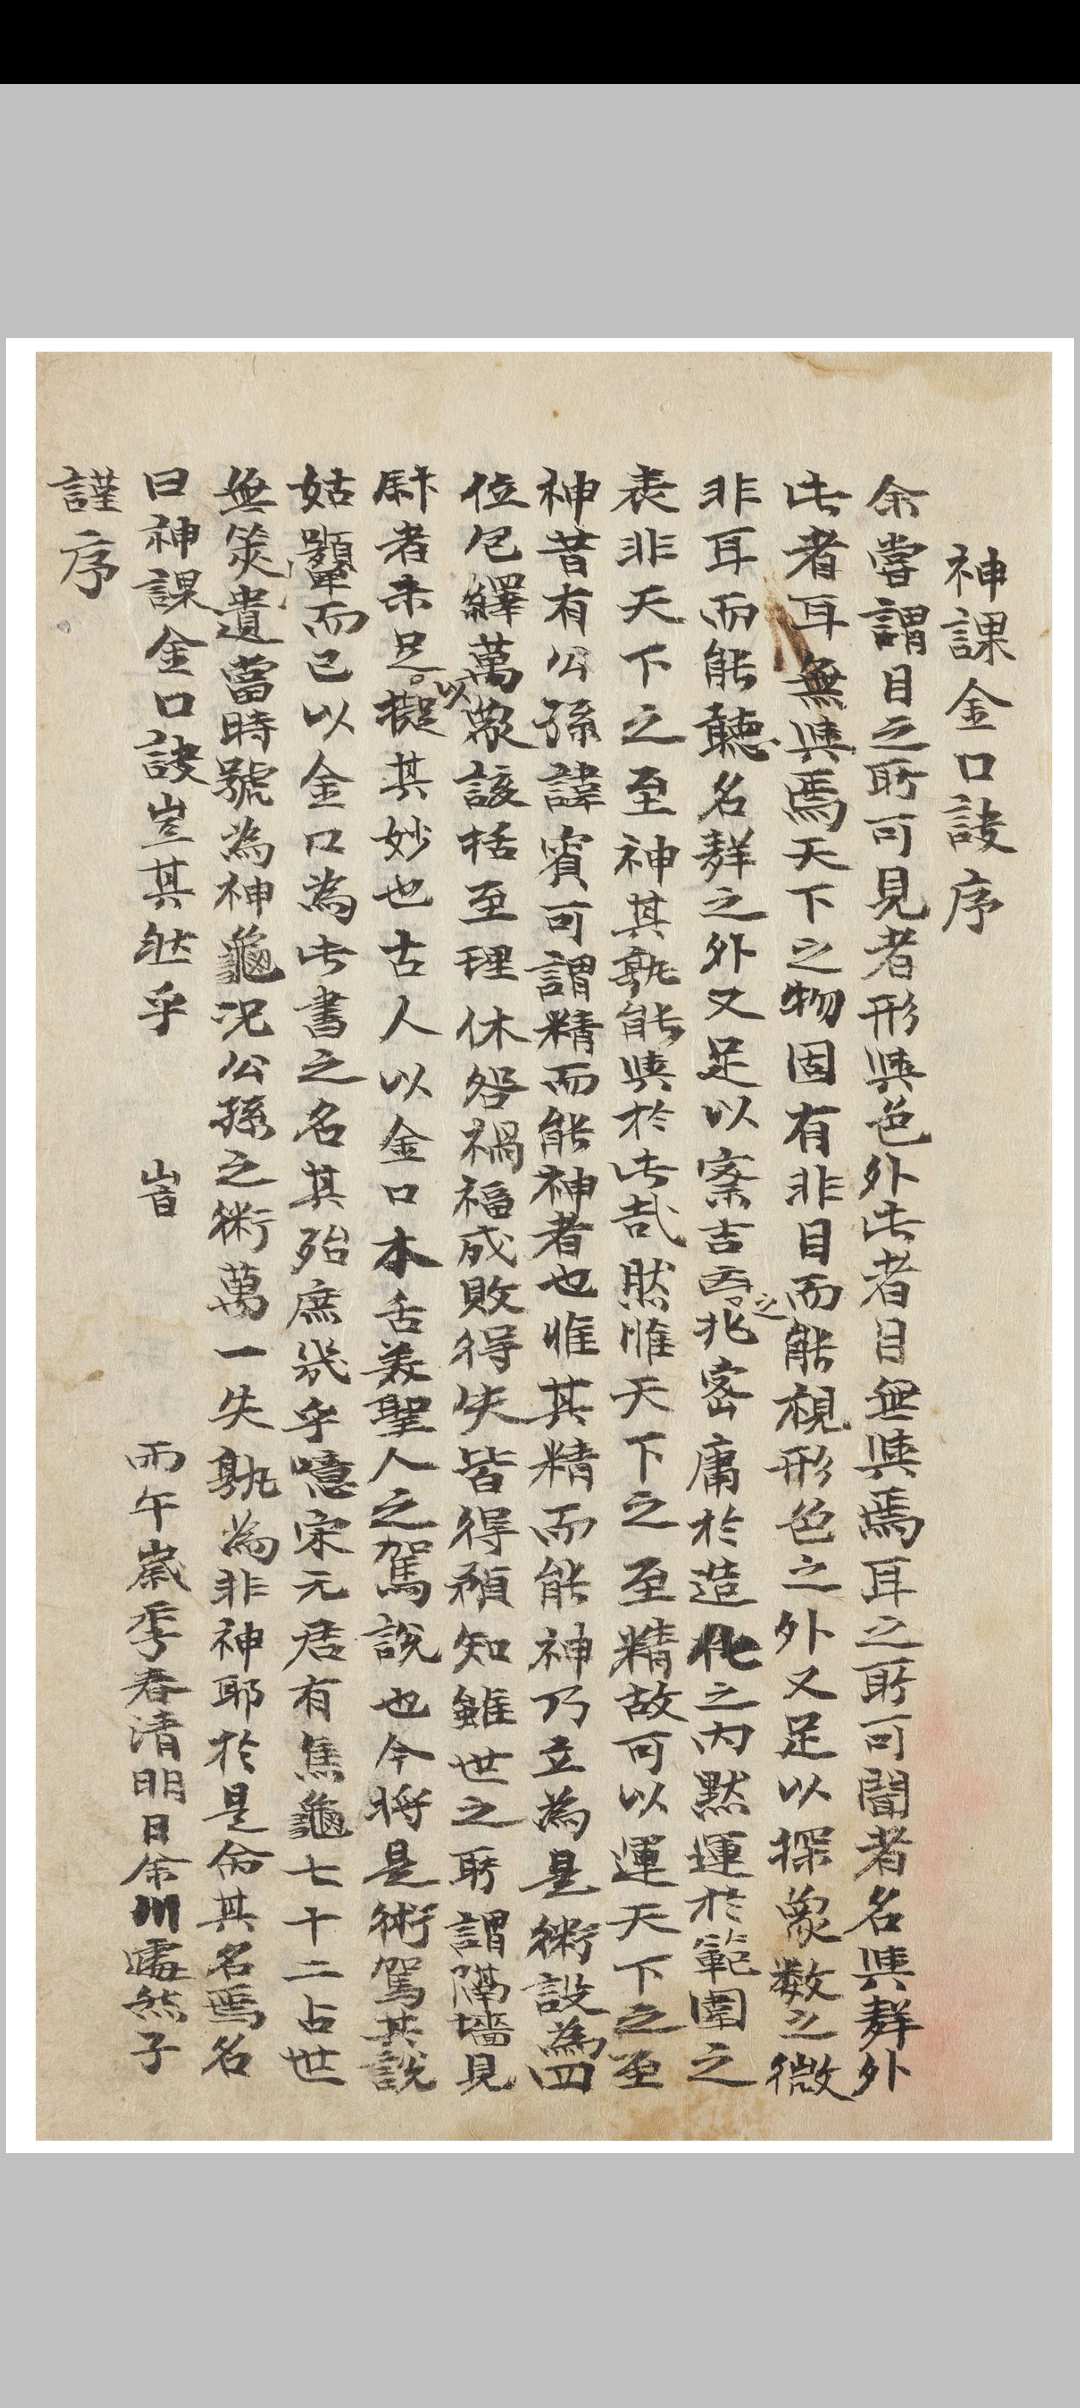 神課金口訣序
余嘗謂目之所可見者形與色外此者目無與焉耳之所可聞者名與聲外
此者耳無與焉天下之物固有非目而能視形色之外又足以探象數之微
非耳而能聽名聲之外又足以察吉否之兆密庸於造化之內默運於範圍之
表非天下之至神其孰能與於此哉然惟天下之至精故可以運天下之至
神昔有公孫諱賓可謂精而能神者也惟其精而能神乃立為是術設為四
位包繹萬象該括至理休咎禍福成敗得失皆得預知雖世之所謂隔墻見
者未足以擬其妙也古人以金口木舌羡聖人之駕說也今將是術駕其說
姑而已以金口為此書之名其殆庶幾乎噫宋元居有焦龜七十二占世
無筴遺當時號為神龜況公孫之術萬一失孰為非神耶於是命其名焉名
曰神課金口訣豈其然乎 旹 丙午歲季春清明日余川然子
謹序